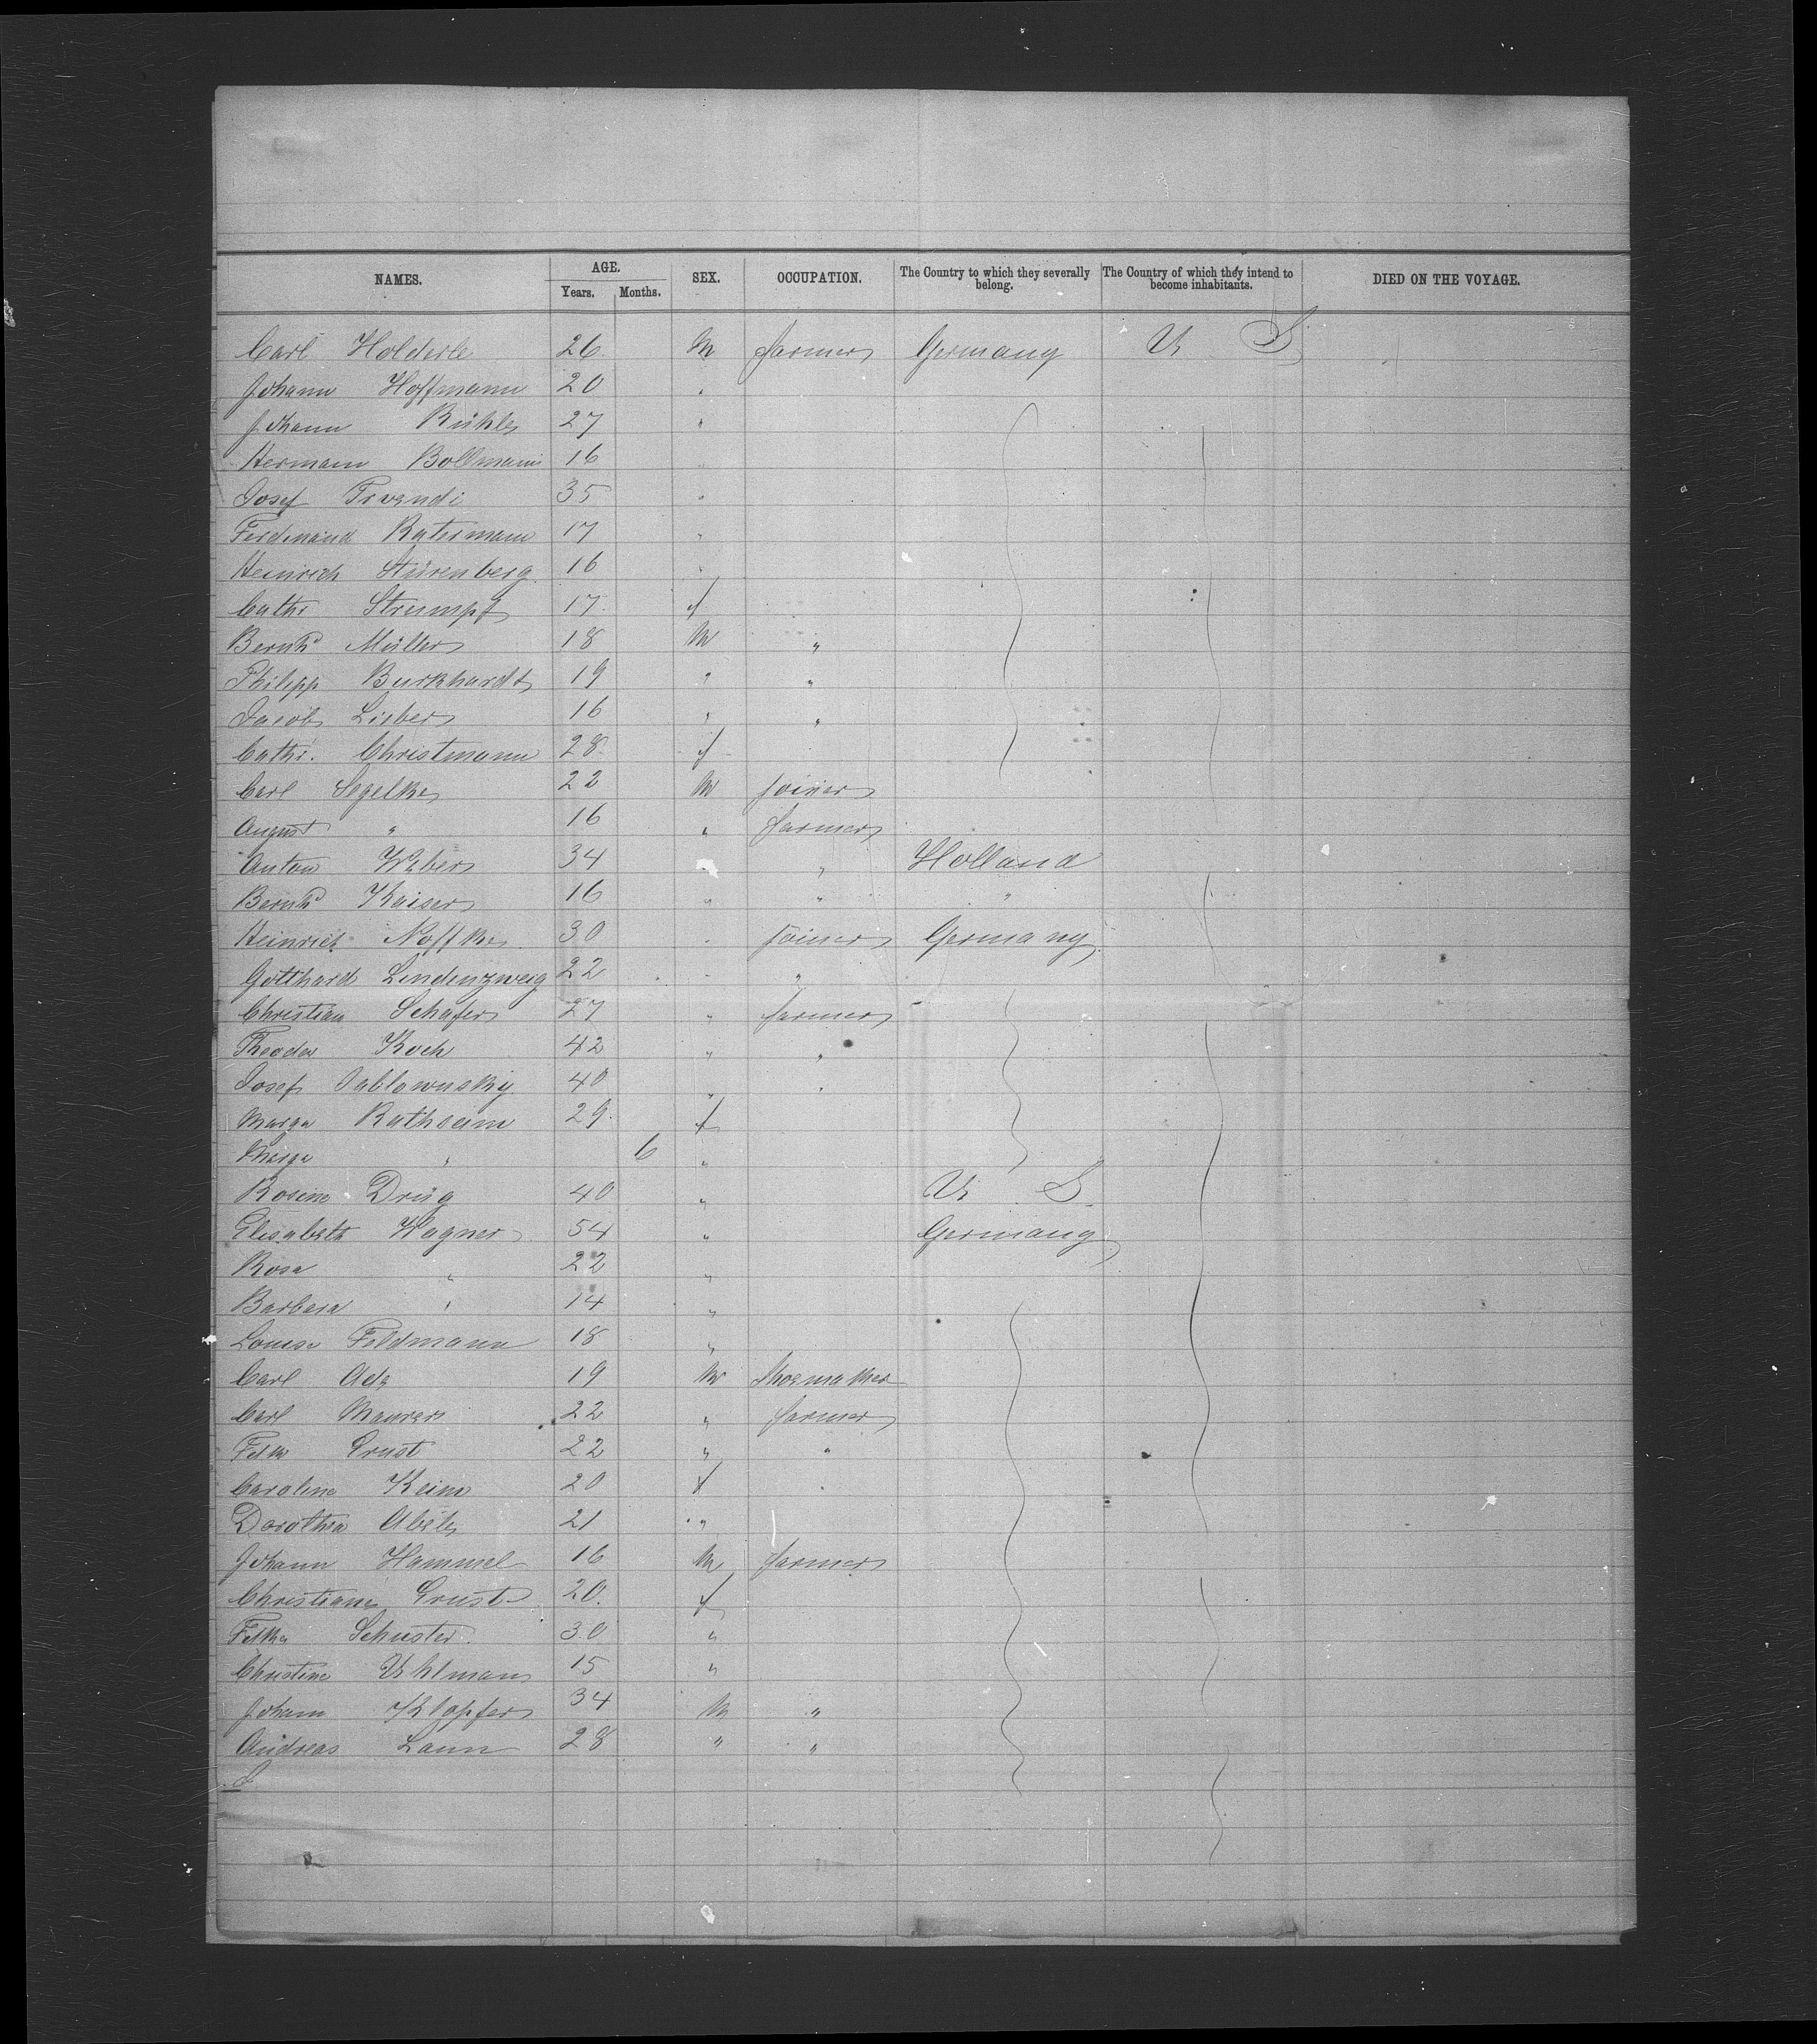 NAMES. AGE. SEX. OCCUPATION. The Country to which they severally belong. The Country of which they intend to become inhabitants. DIED ON THE VOYAGE.
Years. Months.
Carl Holderle 26 m farmer Germany U S
Johann Hoffmann 20 "
Johann Rühle 27 "
Hermann Bollmann 16
Josef 35 "
Ferdinand Ratermann 17 "
Heinrich Stürenberg 16 "
Cathr Strumpf 17 f
Bernhd Müller 18 m "
Philipp Burkhardt 19 " "
Jacob Lieber 16 " "
Cathr. Christmann 28 f
Carl Segelke 22 m joiner
August " 16 " farmer
Anton Weber 34 " " Holland
Bernhd Kaiser 16 " " "
Heinrich Noffke 30 " joiner Germany
Gotthard Lindenzweig 22 " "
Christian Schafer 27 " farmer
Theodor Koch 42 " "
Josef Jablownsky 40 " "
Marga 29 f
Marga " 6 "
Rosine Drüg 40 " U S
Elisabeth Wagner 54 " Germany
Rosa " 22 "
Barbara " 14 "
Louise Feldmann 18 "
Carl Ade 19 m Shoemaker
Carl Maurer 22 " farmer
Ernst 22 " "
Caroline Keim 20 f
Dorothea Abele 21 "
Johann Hammel 16 m farmer
Christiane Ernst 20 f
Schuster 30 "
Christine Uhlmann 15 "
Johann Klopfer 34 m "
Andreas Laun 28 " "